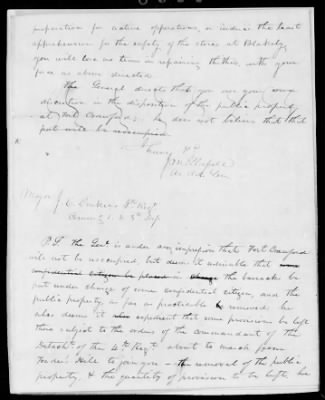 preparation for active operations, or induce the least
apprehension for the safety of the stores at Blakely,
you will lose no time in repairing thither with your
force as above directed.
The General directs that you use your own
discretion in the disposition of the public property
at Fort Crawford; he does not believe that that
post will be reoccupied.
I have &c
Major J.
P.S. The Genl. is under an impression that Fort Crawford
will not be reoccupied but deem it advisable that some
confidential citizen be placed in charge the barracks be
put under charge of some confidential citizen, and the
public property as far as practicable be removed: he
also deems it also expedient that some provision be left
there subject to the orders of the commandant of the
Detacht. of the 4th Regt. about to march from
Hill to join you — the removal of the public
property, & the quantity of provision to be left, he